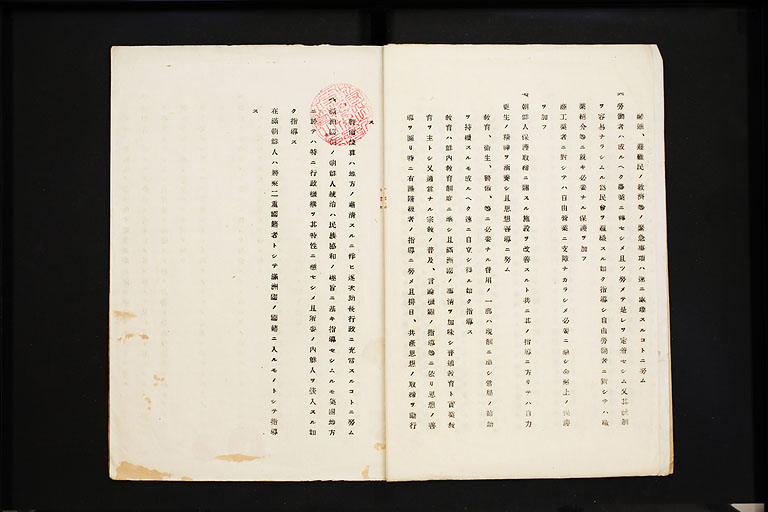 、避難民ノ救済等ノ緊急事項ハ速ニ処理スルコトニ努ム
労働者ハ成ルヘク農業ニ転セシメ且ツ努メテ是レヲ定着セシム又其統制
ヲ容易ナラシムル為民会ヲ組織スル如ク指導シ自由労働者ニ対シテハ職
業紹介等ニ就キ必要ナル保護ヲ加フ
商工業者ニ対シテハ自由営業ニ支障ナカラシメ必要ニ応シ金融上ノ保護
ヲ加フ
朝鮮人保護取締ニ関スル施設ヲ改善スルト共ニ其ノ指導ニ方リテハ自力
更生ノ精神ヲ涵養シ且思想善導ニ努ム
教育、衛生、警備、等ニ必要ナル費用ノ一部ハ現制ニ準シ当局ノ補助
ヲ持続スルモ成ルヘク速ニ自立シ得ル如ク指導ス
教育ハ鮮内教育制度ニ準シ且満洲国ノ事情ヲ加味シ普通教育ト実業教
育ヲ主トシ又適当ナル宗教ノ普及、言論機関ノ指導等ニ依リ思想ノ善
導ヲ図リ特ニ有識階級者ノ指導ニ努メ且排日、共産思想ノ取締ヲ励行
ス
警備設置ハ地方ノ粛清スルニ伴ヒ逐次助長行政ニ充当スルコトニ努ム
満洲国内ノ朝鮮人統治ハ民族協和ノ趣旨ニ基キ指導セシムルモ集団地方
ニ於テハ特ニ行政機構ヲ其特性ニ応セシメ且所要ノ内鮮人ヲ招入スル如
ク指導ス
在満朝鮮人ハ将来二重国籍者トシテ満洲国ノ国籍ニ入ルモノトシテ指導
ス